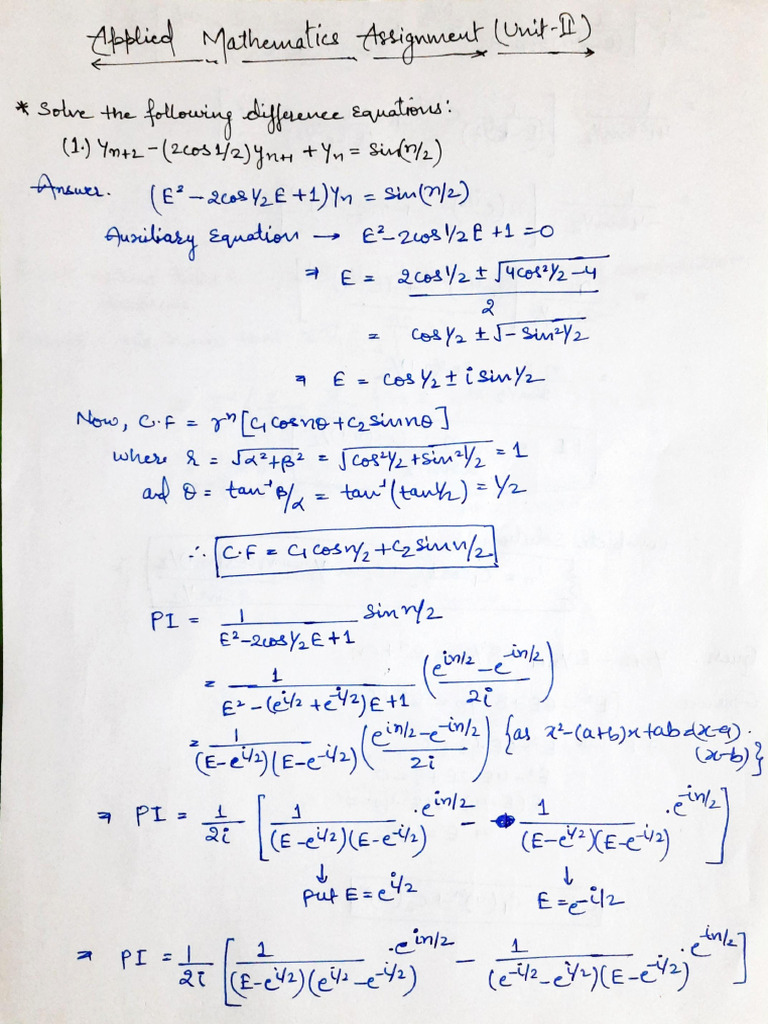 Applied Mathematics Assignment (Unit-II)
* Solve the following difference equations:
(1.) y_{n+2} - (2cos 1/2) y_{n+1} + y_n = sin(n/2)
Answer. (E² - 2cos 1/2 E + 1) y_n = sin(n/2)
Auxiliary Equation → E² - 2cos 1/2 E + 1 = 0
⇒ E = (2cos 1/2 ± √(4cos² 1/2 - 4)) / 2
= cos 1/2 ± √(-sin² 1/2)
⇒ E = cos 1/2 ± i sin 1/2
Now, C.F = r^n [c₁ cos nθ + c₂ sin nθ]
where r = √(α² + β²) = √(cos² 1/2 + sin² 1/2) = 1
and θ = tan⁻¹ β/α = tan⁻¹ (tan 1/2) = 1/2
∴ C.F = c₁ cos n/2 + c₂ sin n/2
PI = 1/(E² - 2cos 1/2 E + 1) sin n/2
= 1/(E² - (e^{i/2} + e^{-i/2})E + 1) ((e^{in/2} - e^{-in/2})/2i)
= 1/((E - e^{i/2})(E - e^{-i/2})) ((e^{in/2} - e^{-in/2})/2i) {as x² - (a+b)x + ab = (x-a).
(x-b)}
⇒ PI = 1/2i [1/((E - e^{i/2})(E - e^{-i/2})) . e^{in/2} - 1/((E - e^{i/2})(E - e^{-i/2})) . e^{-in/2}]
↓ ↓
put E = e^{i/2} E = e^{-i/2}
⇒ PI = 1/2i [1/((E - e^{i/2})(e^{i/2} - e^{-i/2})) . e^{in/2} - 1/((e^{-i/2} - e^{i/2})(E - e^{-i/2})) . e^{-in/2}]